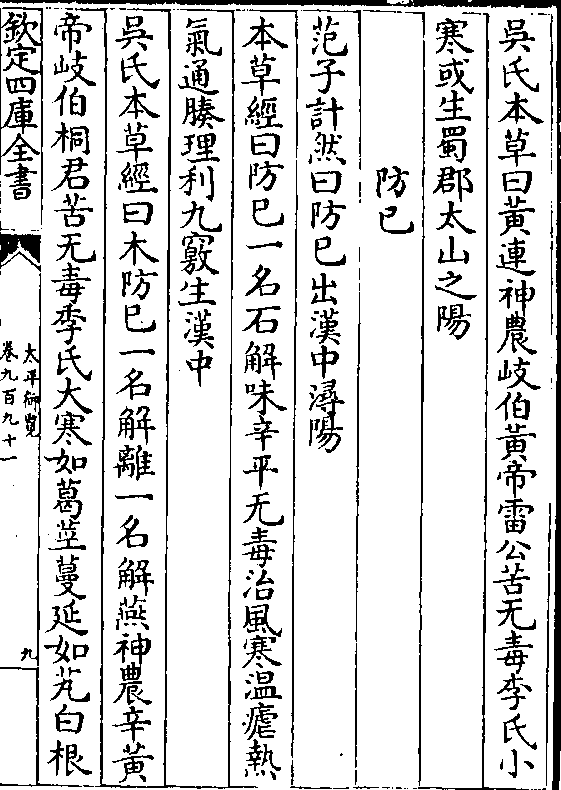 吳氏本草曰黃連神農岐伯黃帝雷公苦无毒李氏小
寒或生蜀郡太山之陽
防已
范子計然曰防已出漢中潯陽
本草經曰防已一名石解味辛平无毒治風寒温瘧熱
氣通腠理利九竅生漢中
吳氏本草經曰木防已一名解離一名解燕神農辛黃
帝岐伯桐君苦无毒李氏大寒如葛莖蔓延如芃白根
欽定四庫全書
太平御覽
卷九百九十一
九